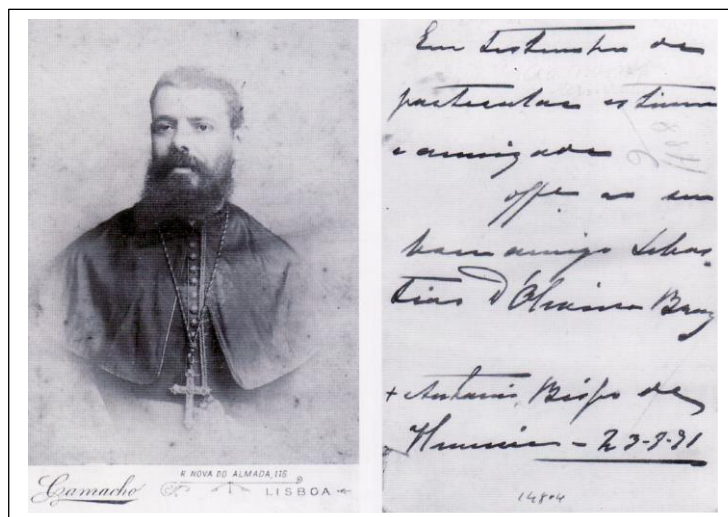 Camacho
R. NOVA DO ALMADA, 116
LISBOA
Em testemunho de
particular estima
e amizade
offe ao seu
bom amigo Sebas-
tião d'Oliveira Braz
+ Antonio, Bispo de
Himeria - 23-9-91
14804